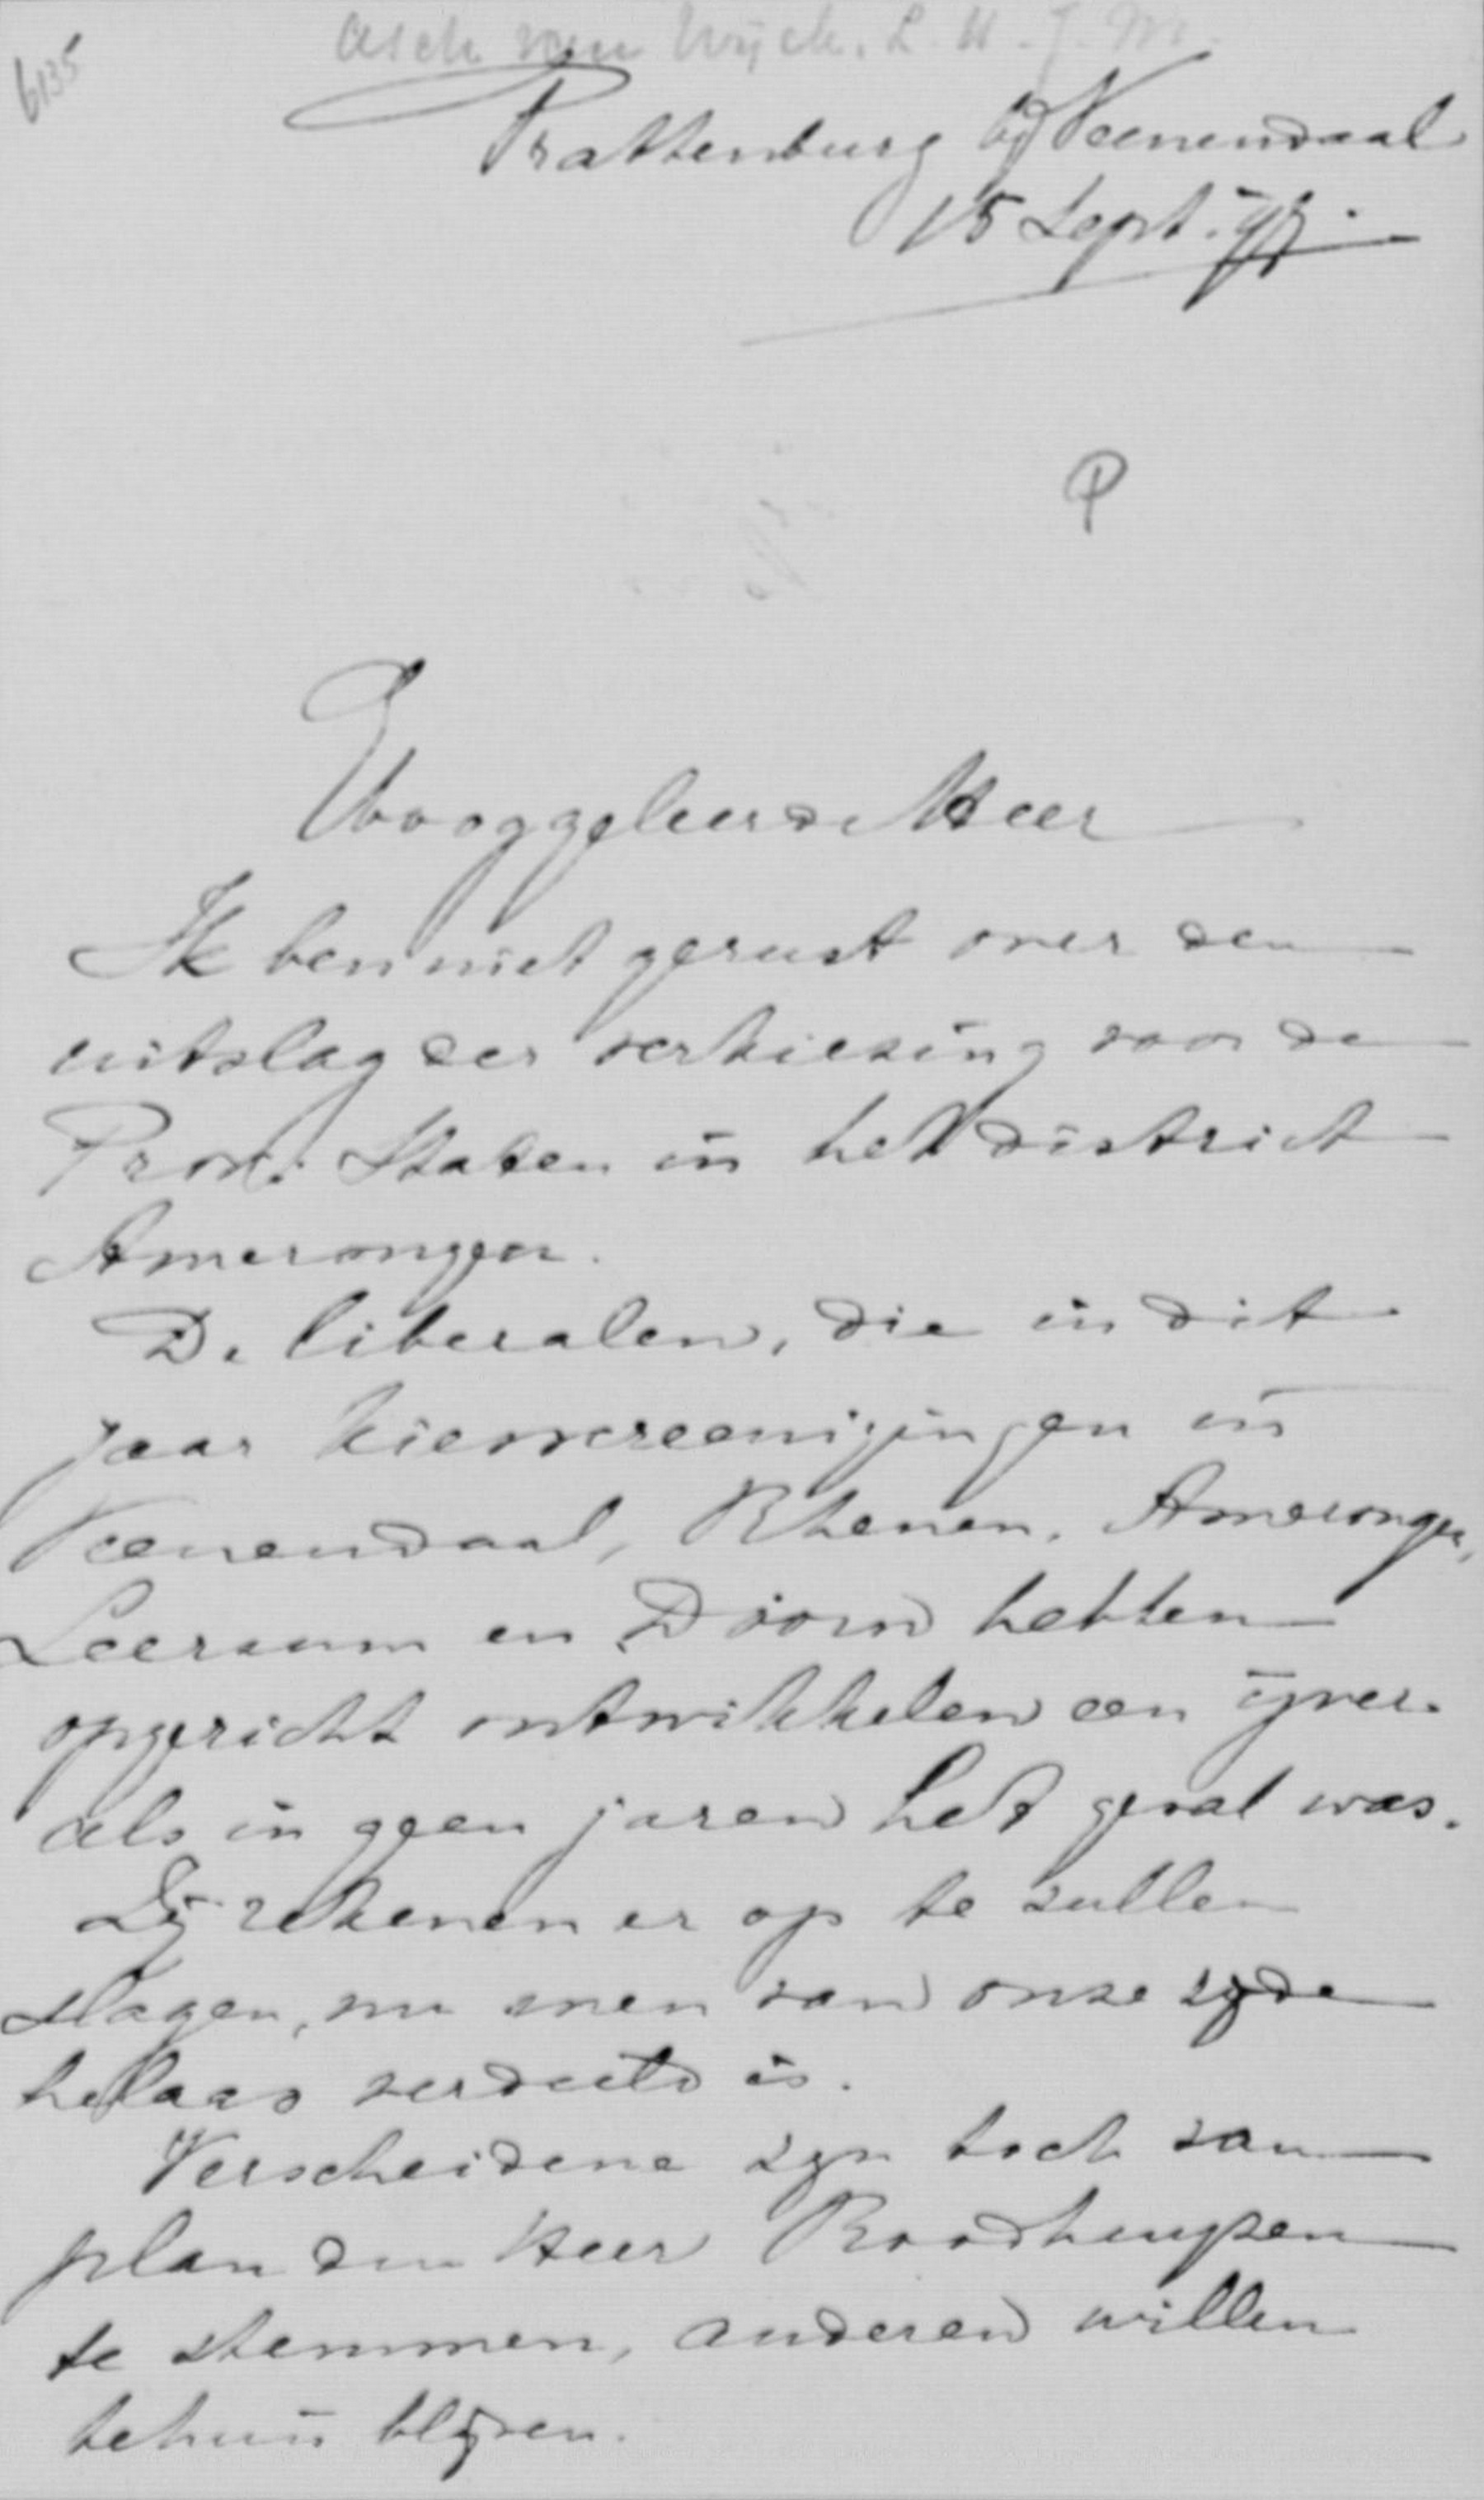 6135
Asch van Wijck. L. H. J. M.
Prattenburg bij Veenendaal
15 Sept.
P
Hooggeleerde Heer
Ik ben niet gerust over den
uitslag der verkiezing voor de
Prov. Staten in het district
Amerongen.
De liberalen, die in dit
jaar kiesvereenigingen in
Veenendaal, Rhenen, Amerongen,
Leersum en Doorn hebben
opgericht ontwikkelen een ijver
als in geen jaren het geval was.
Zij rekenen er op te zullen
slagen, nu men van onze zijde
helaas verdeeld is.
Verscheidene zijn toch van
plan den Heer Roodhuyzen
te stemmen, anderen willen
tehuis blijven.